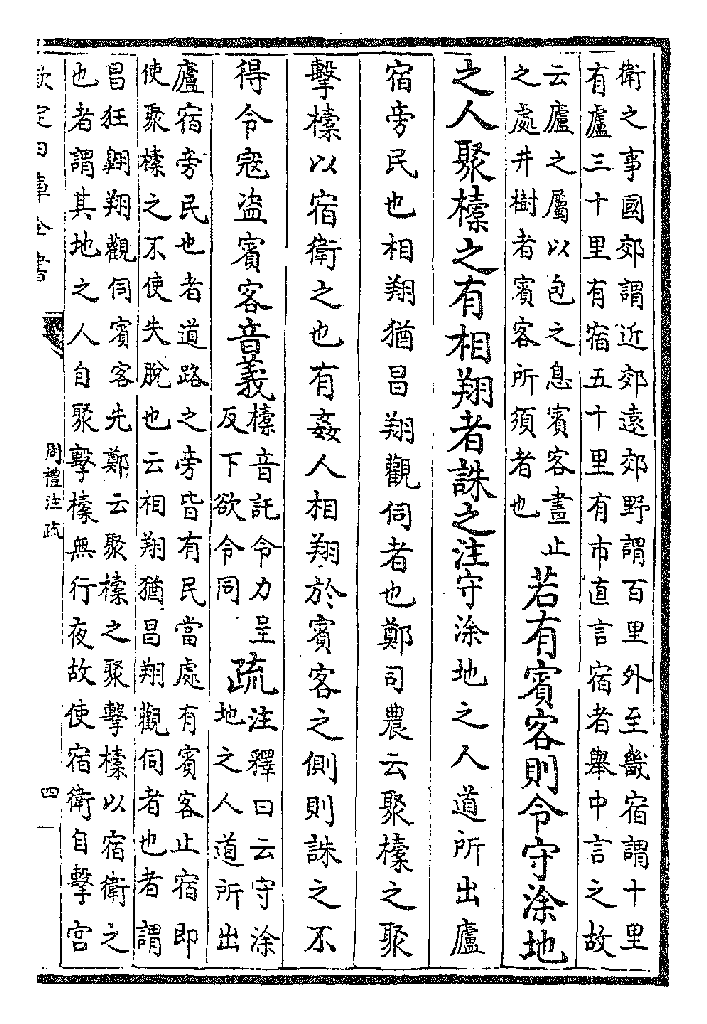 衛之事國郊謂近郊遠郊野謂百里外至畿宿謂十里
有廬三十里有宿五十里有市直言宿者舉中言之故
云廬之屬以包之息賓客晝止
之處井樹者賓客所須者也
若有賓客則令守涂地
之人聚㯓之有相翔者誅之注守涂地之人道所出廬
宿旁民也相翔猶昌翔觀伺者也鄭司農云聚㯓之聚
擊㯓以宿衛之也有姦人相翔於賓客之側則誅之不
得令寇盗賓客音義
㯓音託令力呈
反下欲令同
疏
注釋曰云守涂
地之人道所出
廬宿旁民也者道路之旁皆有民當處有賓客止宿即
使聚㯓之不使失脫也云相翔猶昌翔觀伺者也者謂
昌狂翺翔觀伺賓客先鄭云聚㯓之聚擊㯓以宿衛之
也者謂其地之人自聚擊㯓無行夜故使宿衛自擊宫
欽定四庫全書
周禮注疏
四